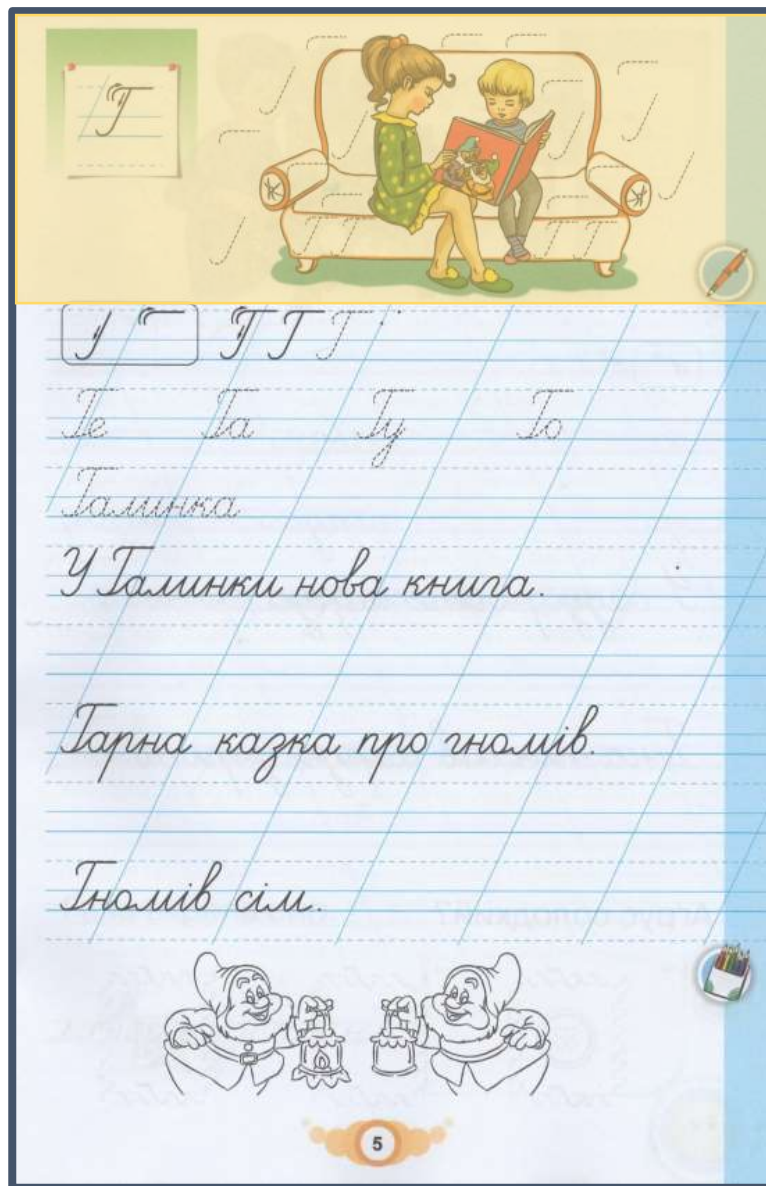 Г
Г Г Г
Ге Га Гу Го
Галинка
У Галинки нова книга.
Гарна казка про гномів.
Гномів сім.
5